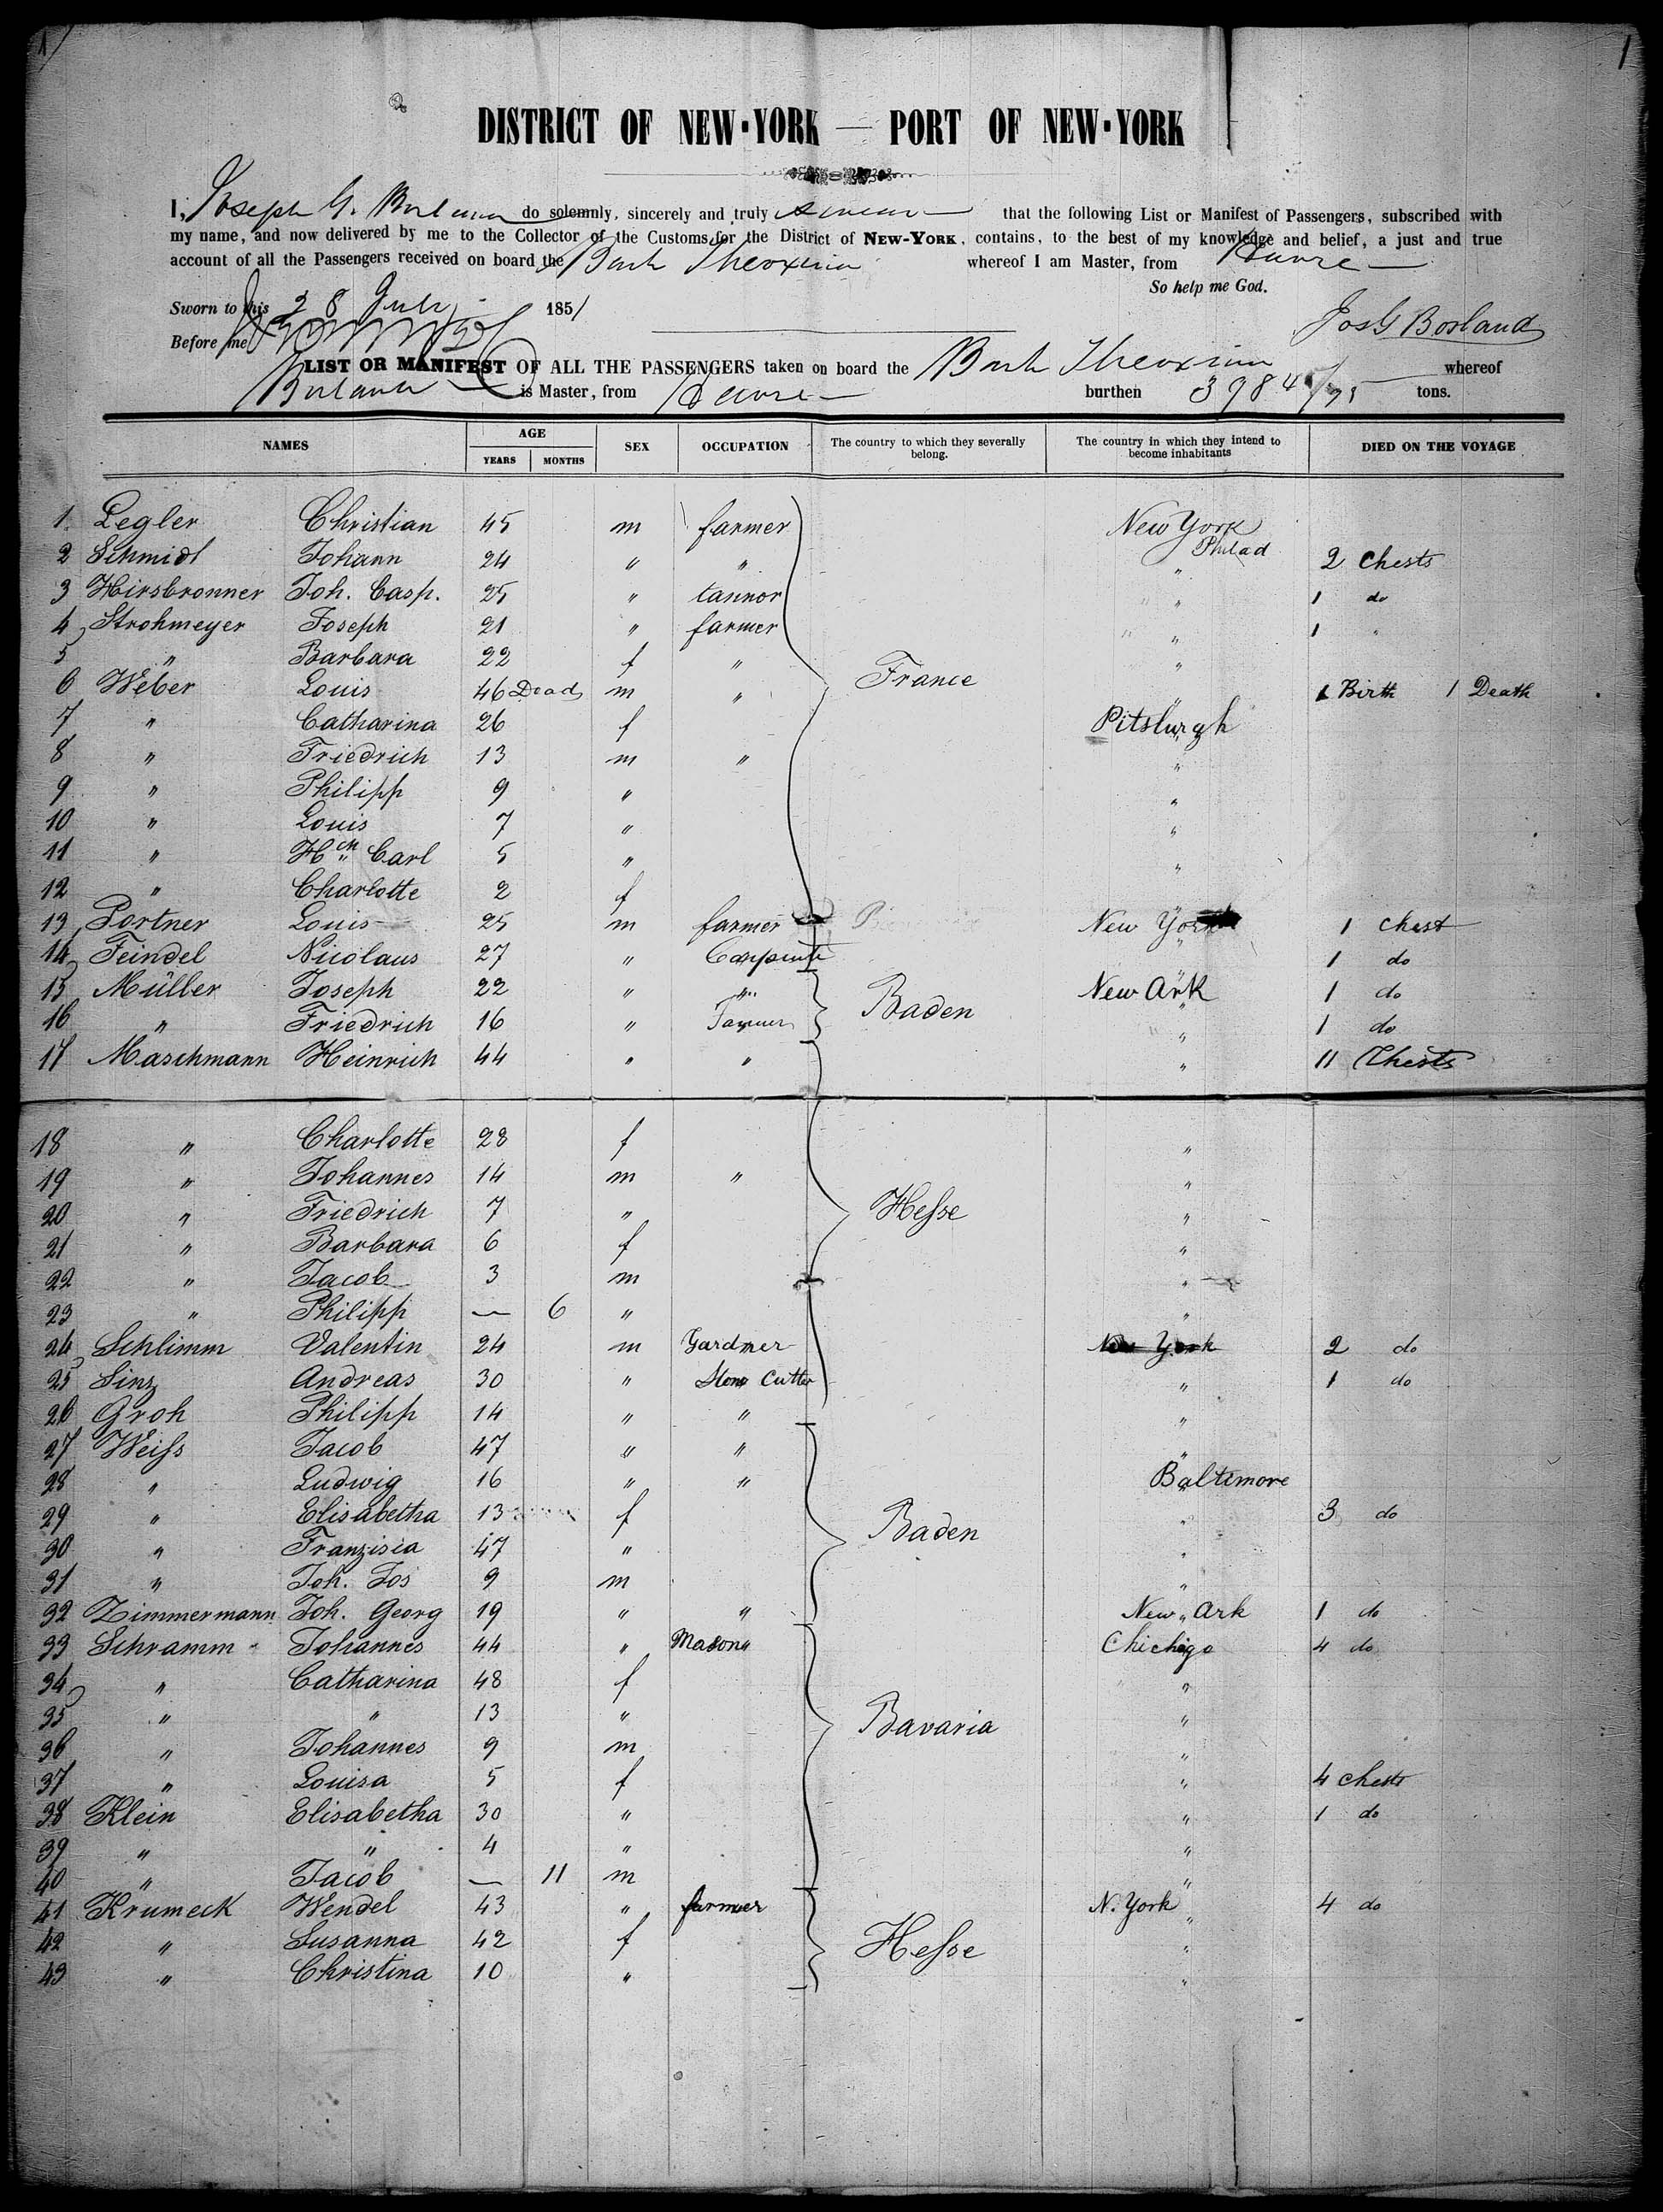 1
DISTRICT OF NEW-YORK — PORT OF NEW-YORK
I, Joseph G. do solemnly, sincerely and truly swear that the following List or Manifest of Passengers, subscribed with
my name, and now delivered by me to the Collector of the Customs for the District of NEW-YORK, contains, to the best of my knowledge and belief, a just and true
account of all the Passengers received on board the Bark Theoxena whereof I am Master, from Havre
So help me God.
Sworn to this 28 July 1851
Jos G Borland
Before me
LIST OR MANIFEST OF ALL THE PASSENGERS taken on board the Bark Theoxena whereof
Borland is Master, from Havre burthen 398 tons.
NAMES AGE SEX OCCUPATION The country to which they severally belong. The country in which they intend to become inhabitants DIED ON THE VOYAGE
YEARS MONTHS
1 Legler Christian 45 m farmer New York
2 Schmidt Johann 24 " " Philad " 2 Chests
3 Hirsbronner Joh. Casp. 25 " tannor " 1 do
4 Strohmeyer Joseph 21 " farmer " 1 "
5 " Barbara 22 f " France "
6 Weber Louis 46 Dead m " " 1 Birth 1 Death
7 " Catharina 26 f Pitsburgh
8 " Friedrich 13 m " "
9 " Philipp 9 " "
10 " Louis 7 " "
11 " Hch Carl 5 " "
12 " Charlotte 2 f
13 Portner Louis 25 m farmer New York 1 Chest
14 Feindel Nicolaus 27 " Carpinter " 1 do
15 Müller Joseph 22 " " Baden New Ark 1 do
16 " Friedrich 16 " Farmer " 1 do
17 Maschmann Heinrich 44 " " " 11 Chests
18 " Charlotte 28 f "
19 " Johannes 14 m " "
20 " Friedrich 7 " Hesse "
21 " Barbara 6 f "
22 " Jacob 3 m "
23 " Philipp — 6 " "
24 Schlimm Valentin 24 m Gardner New York 2 do
25 Sinz Andreas 30 " Stone Cutter " 1 do
26 Groh Philipp 14 " " "
27 Weiss Jacob 47 " " "
28 " Ludwig 16 " " Baltimore
29 " Elisabetha 13 f Baden " 3 do
30 " Franzisia 47 " "
31 " Joh. Jos 9 m "
32 Zimmermann Joh. Georg 19 " " New Ark 1 do
33 Schramm Johannes 44 " Mason Chichigo 4 do
34 " Catharina 48 f "
35 " " 13 " Bavaria "
36 " Johannes 9 m "
37 " Louisa 5 f " 4 Chests
38 Klein Elisabetha 30 " " 1 do
39 " " 4 " "
40 " Jacob — 11 m "
41 Krumeck Wendel 43 " farmer N. York 4 do
42 " Susanna 42 f Hesse "
43 " Christina 10 " "